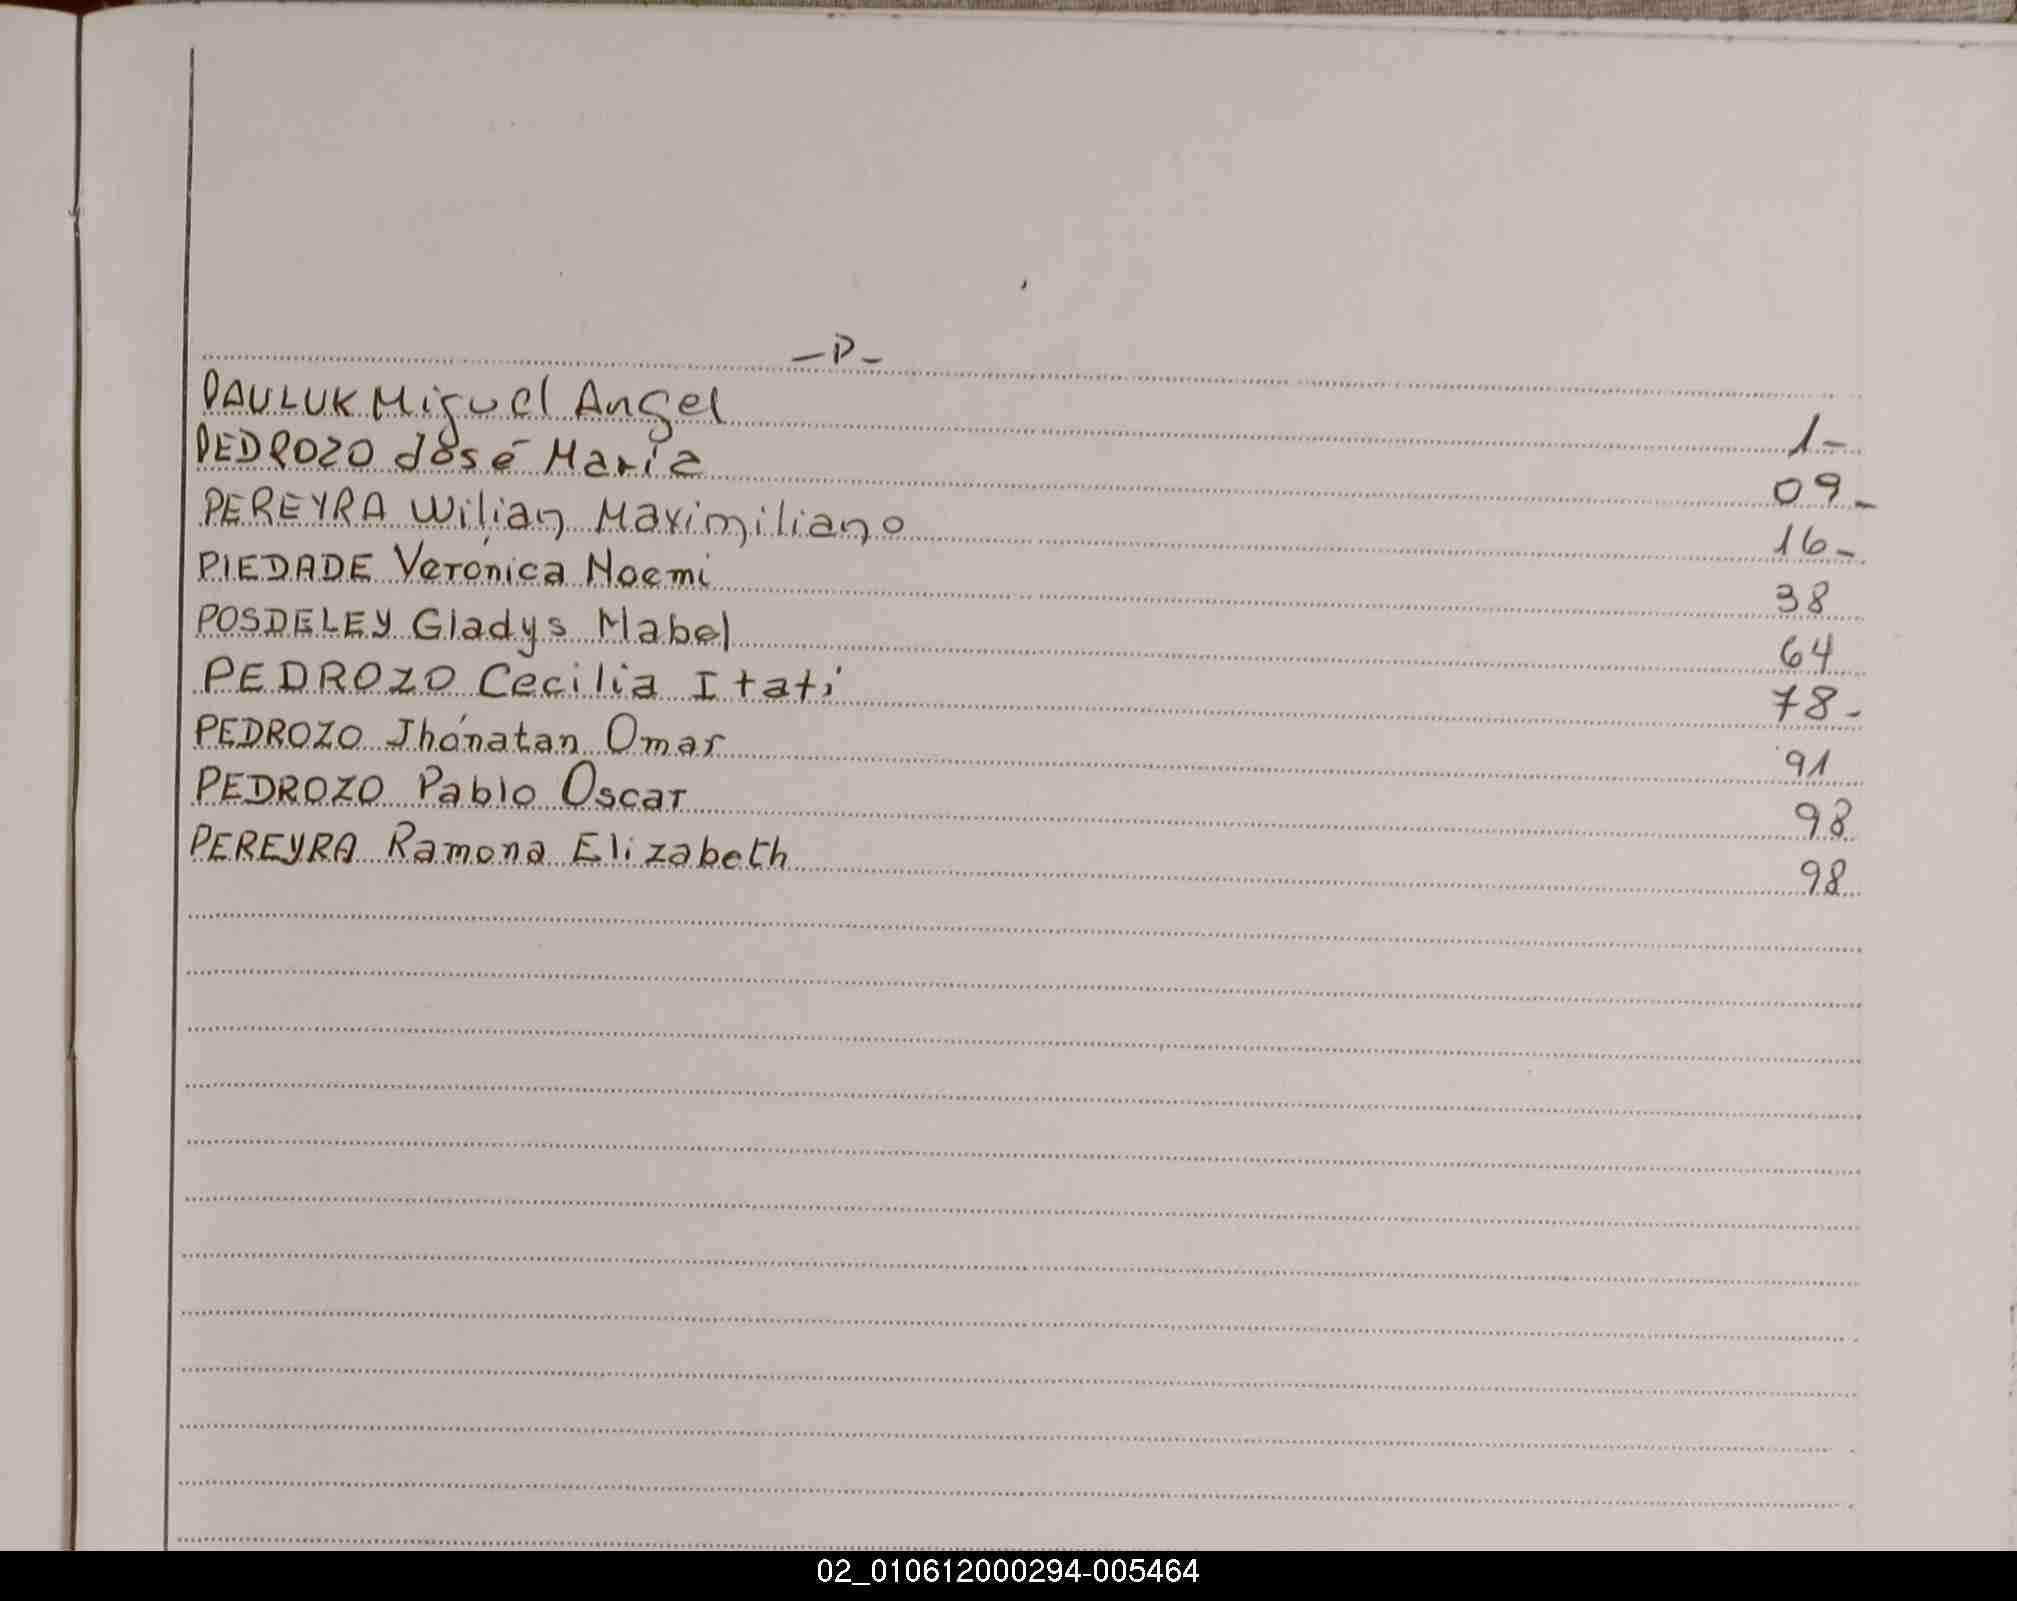 -P-
PAULUK Miguel Angel 1-
PEDROZO José María 09-
PEREYRA Wilian Maximiliano 16-
PIEDADE Verónica Noemi 38
POSDELEY Gladys Mabel 64
PEDROZO Cecilia Itatí 78-
PEDROZO Jhónatan Omar 91
PEDROZO Pablo Oscar 98
PEREYRA Ramona Elizabeth 98
02_010612000294-005464